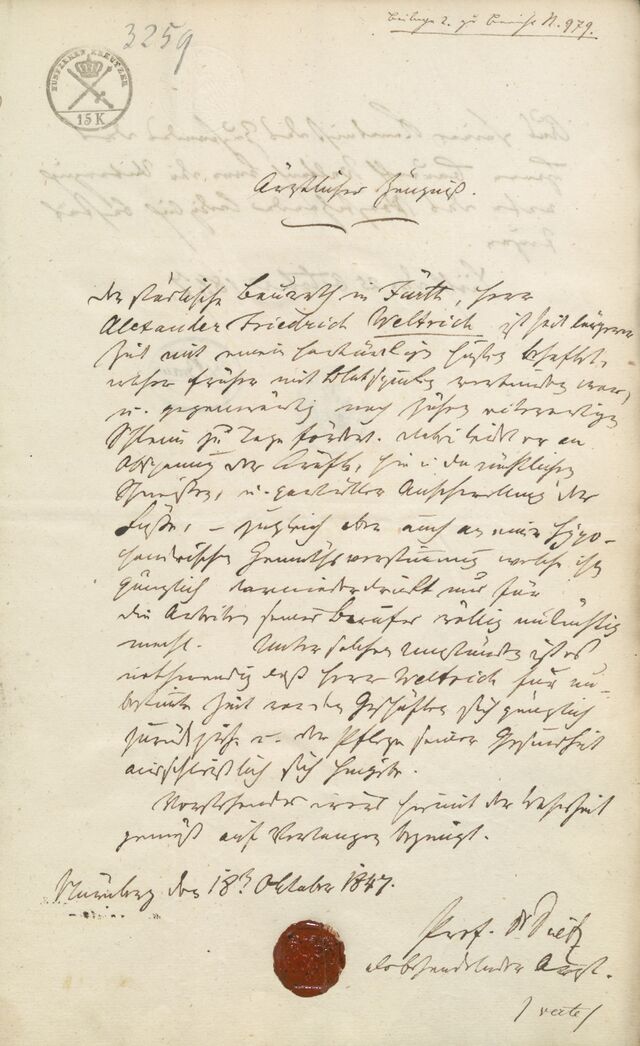 3259
Beilage 2. zu Bericht N. 979.
FUNFZEHEN KREUTZER
15 K
Ärztliches Zeugniß.
Der städtische Baurath in Fürth, Herr
Alexander Friedrich Weltrich ist seit längerer
Zeit mit einem hartnäckigen Husten behaftet,
welcher früher mit Blutspucken verbunden war,
u. gegenwärtig noch zähen eiterartigen
Schleim zu Tage fördert. Dabei leidet er an
Abspannung der Kräfte, hie u. da nächtlichen
Schweißen, u. partieller Anschwellung der
Füße, – zugleich aber auch an einer hypo-
chondrischen Gemüthsverstimmung welche ihn
gänzlich darniederdrückt und für
die Arbeiten seines Berufes völlig untüchtig
macht. Unter solchen Umständen ist es
nothwendig daß Herr Weltrich für un-
bestimmte Zeit von den Geschäften sich gänzlich
zurückziehe u. der Pflege seiner Gesundheit
ausschließlich sich hingebe.
Vorstehendes wird hiermit der Wahrheit
gemäß auf Verlangen bezeugt.
Nürnberg den 18. Oktober 1847.
Prof. Dr Dietz
als behandelnder Arzt.
verte